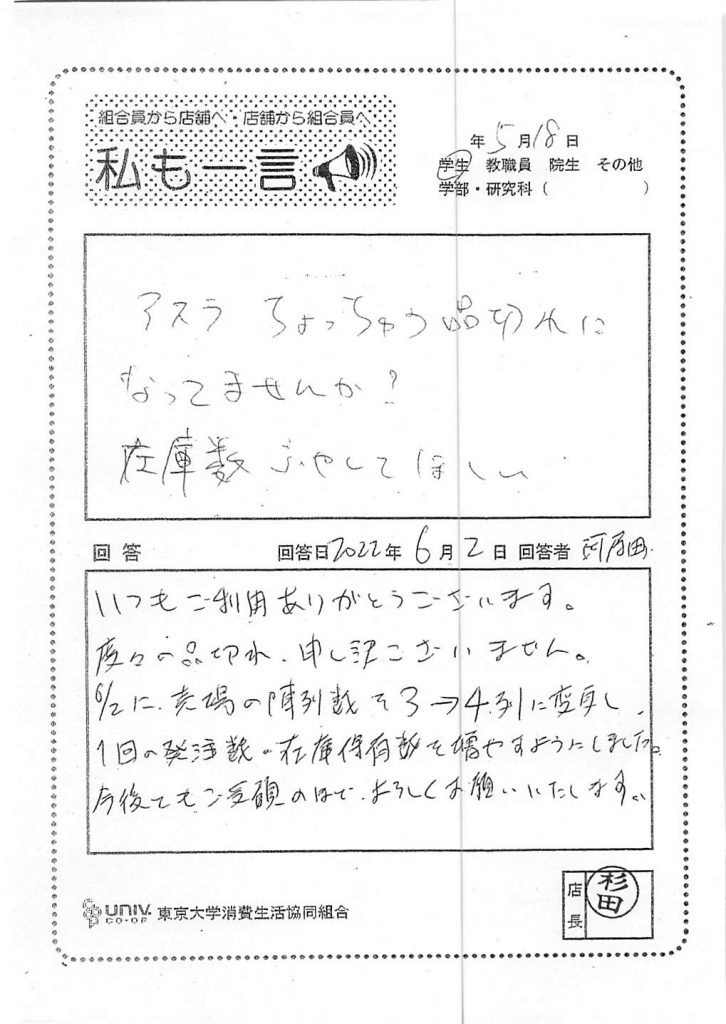 組合員から店舗へ・店舗から組合員へ
私も一言
年 5月18日
学生 教職員 院生 その他
学部・研究科( )
アスラ ちょっちゅう品切れに
なってませんか?
在庫数ふやしてほしい
回答 回答日2022年 6月2日 回答者 河原田
いつもご利用ありがとうございます。
度々の品切れ、申し訳ございません。
6/2に、売場の陳列数を3→4列に変更し、
1回の発注数・在庫保有数を増やすようにしました。
今後ともご愛顧のほど、よろしくお願いいたします。
UNIV.
CO-OP 東京大学消費生活協同組合
店長
杉田